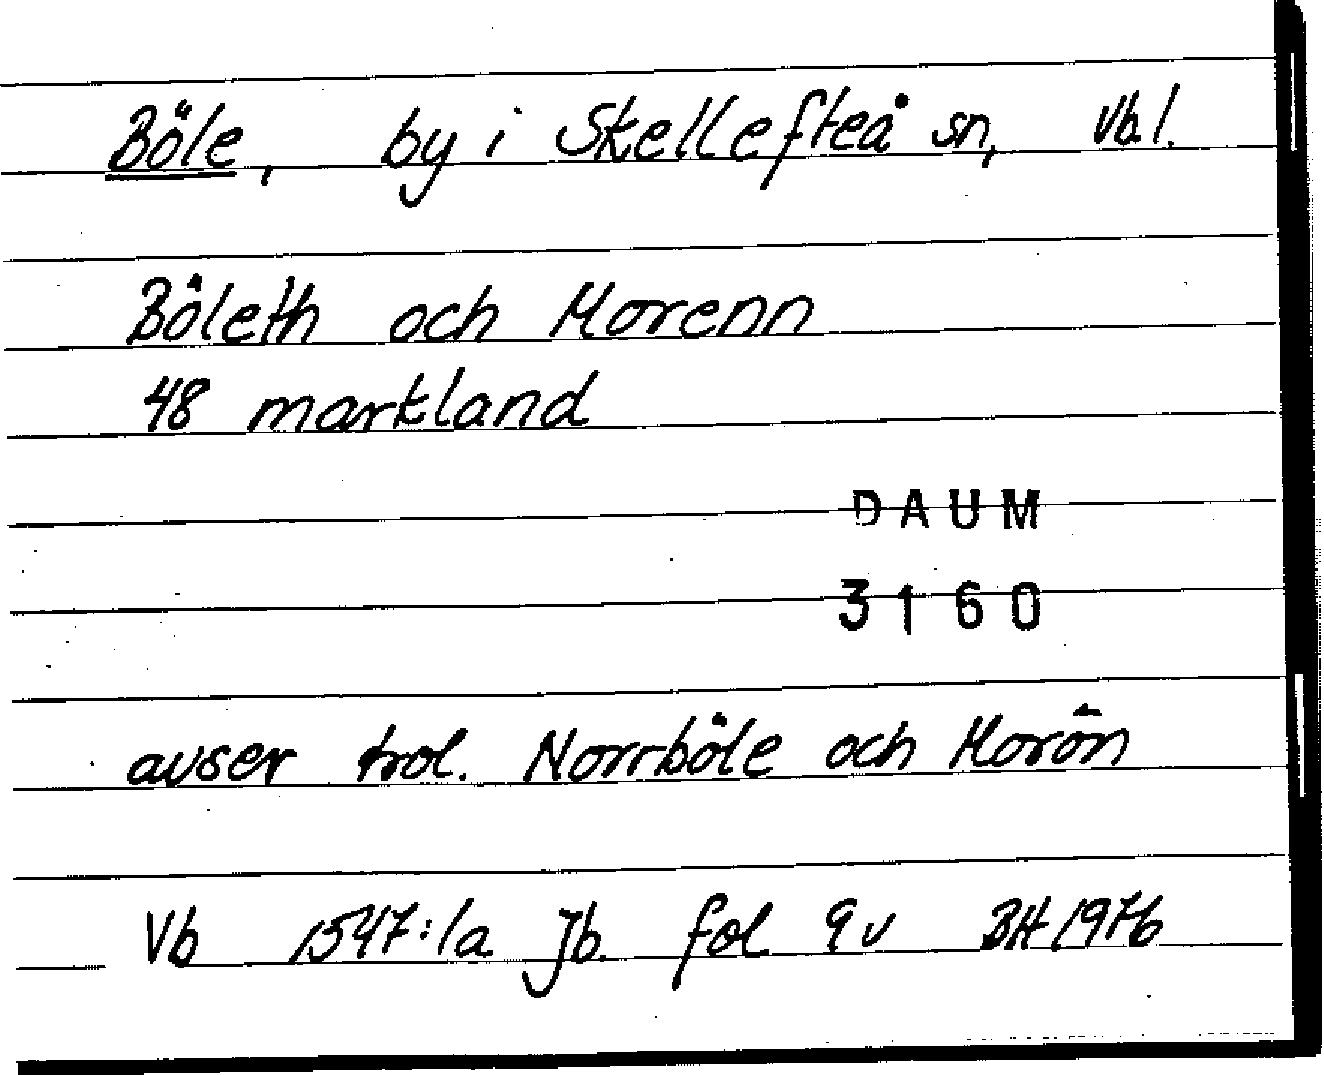 Böle, by i Skellefteå sn, Vb.l.
Böleth och Morenn
48 markland
DAUM
3160
avser trol. Norrböle och Morön
Vb 1547:1a Jb. fol 9v BH 1976